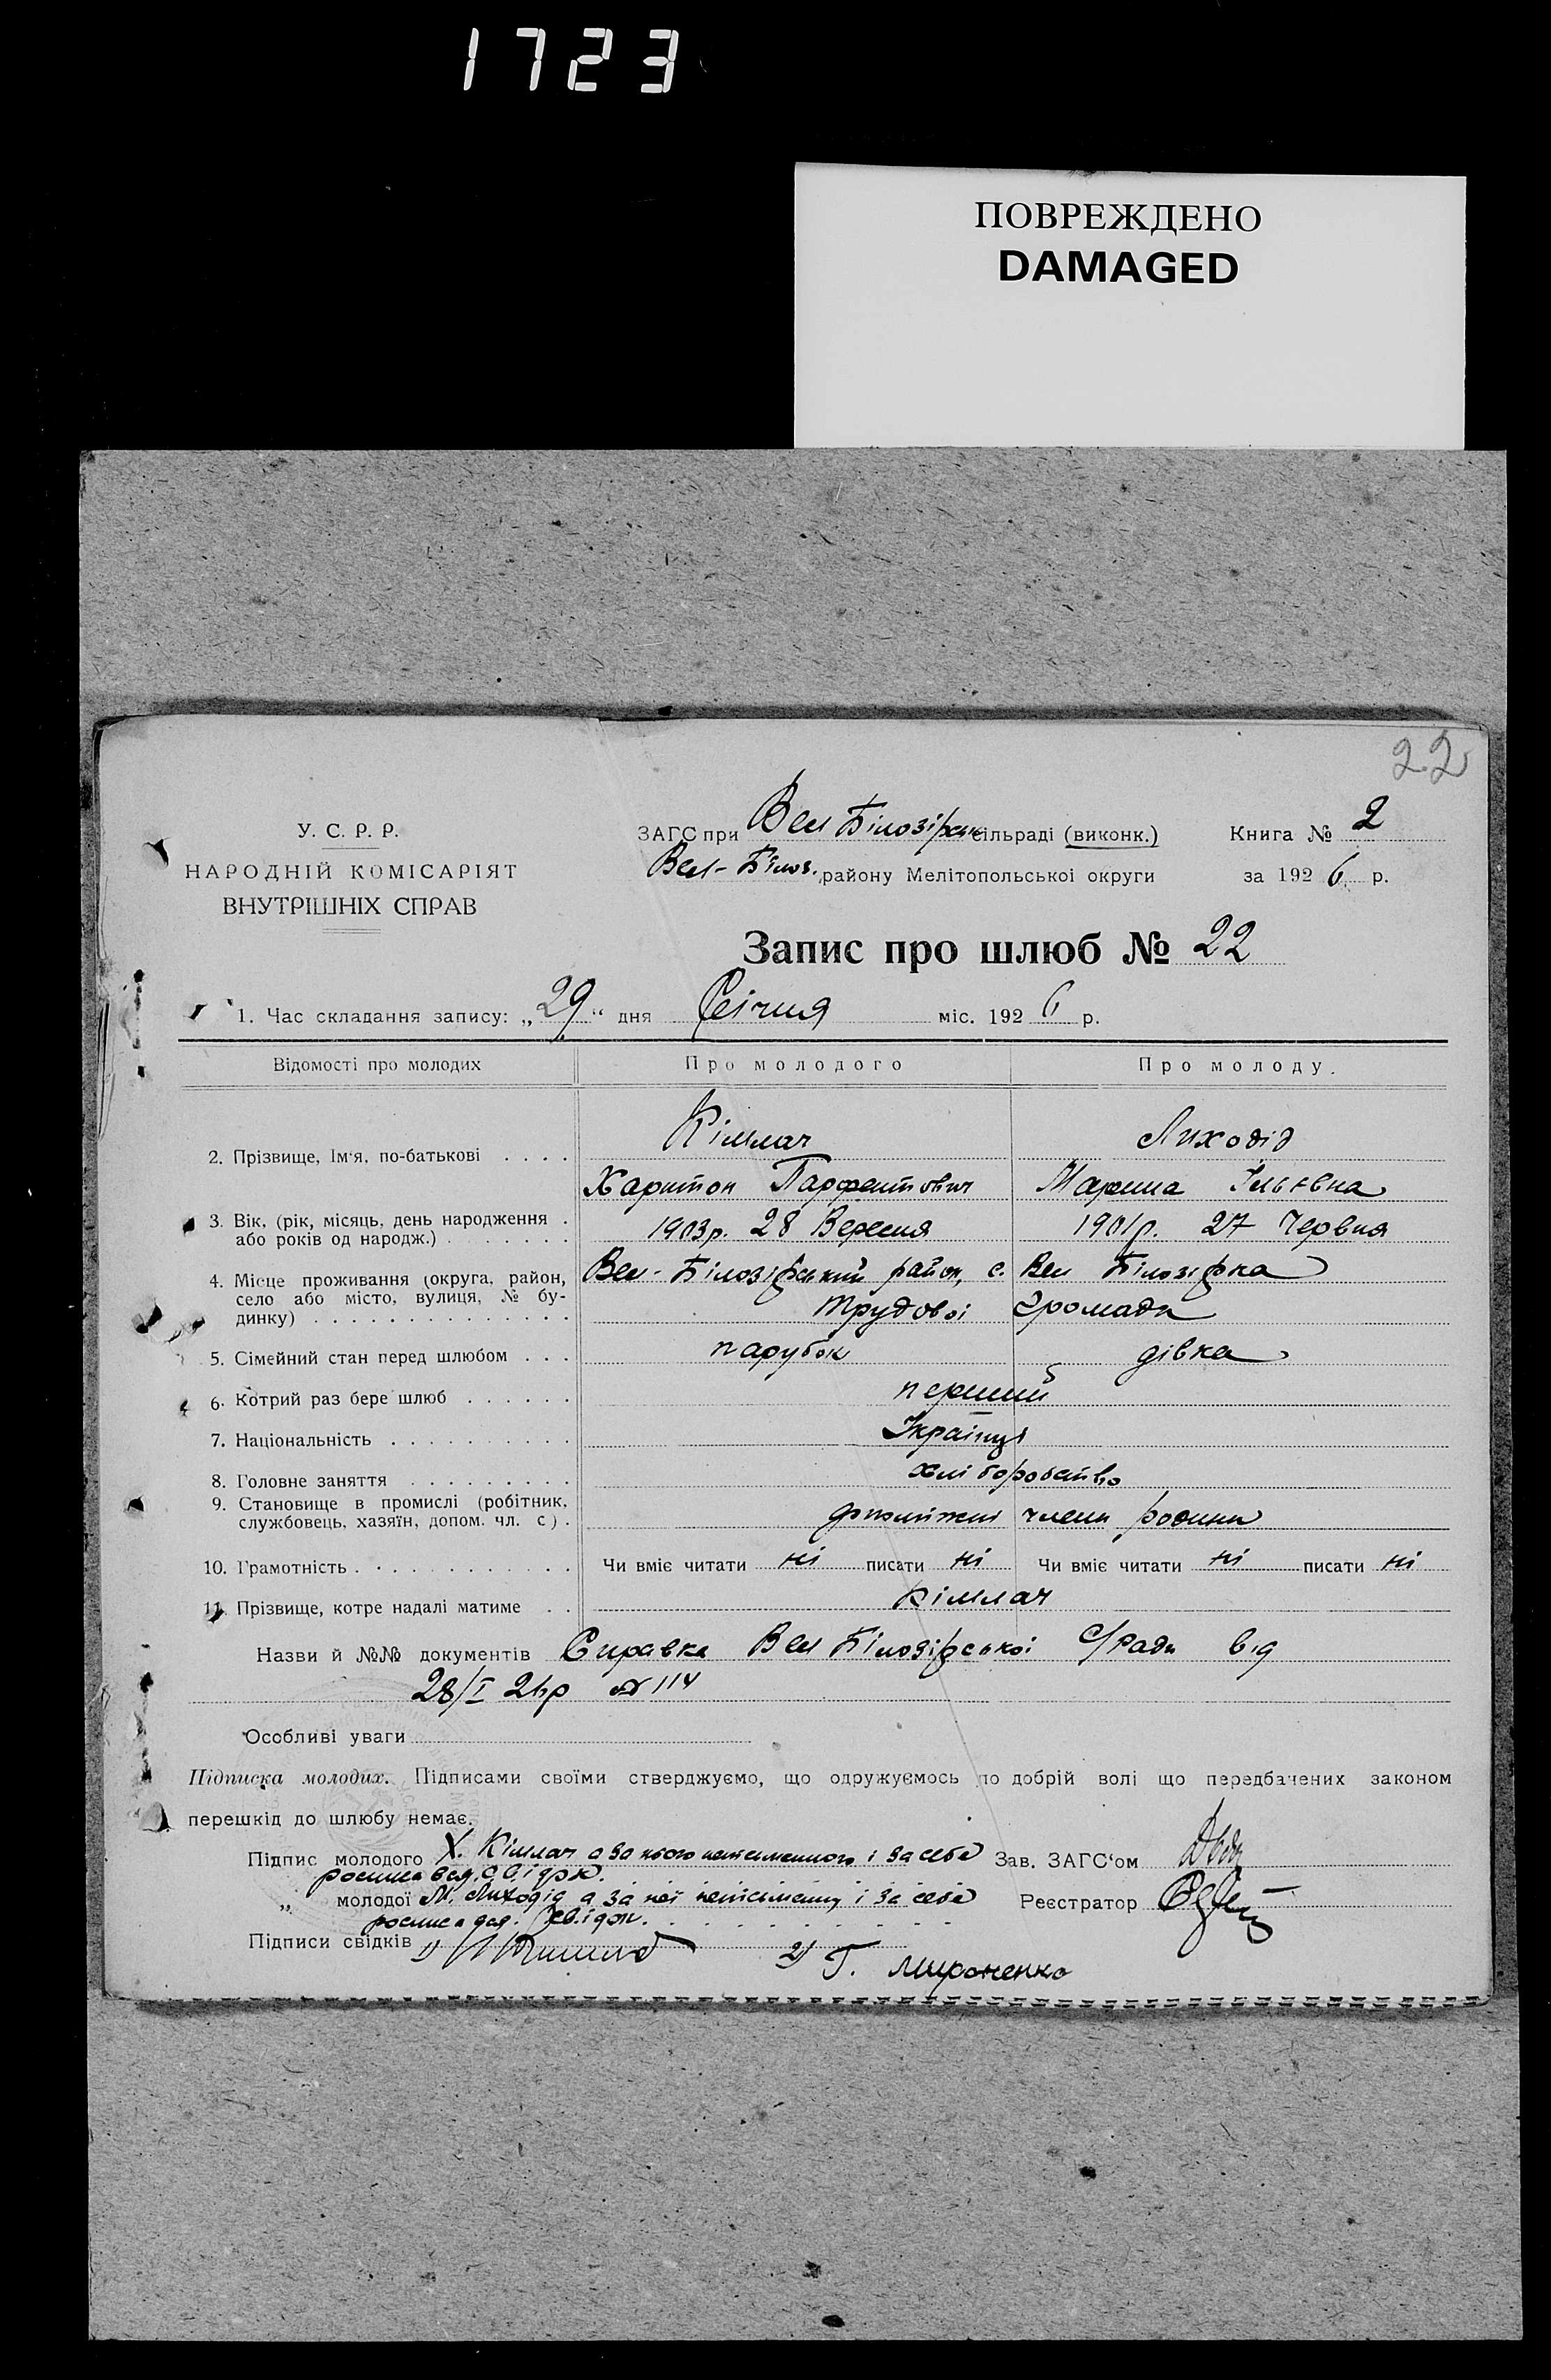 1723
ПОВРЕЖДЕНО
DAMAGED
22
У. С. Р. Р.
НАРОДНІЙ КОМІСАРІЯТ
ВНУТРІШНІХ СПРАВ
ЗАГС при Вел Білозірськ сільраді (виконк.)
Вел-Білоз. району Мелітопольської округи
Книга № 2
за 1926 р.
Запис про шлюб № 22
1. Час складання запису: „29“ дня Січня міс. 1926 р.
Відомості про молодих Про молодого Про молоду.
2. Прізвище, Ім'я, по-батькові . . . . Кіммач Лиходід
Харитон Парфентович Марина Ільївна
3. Вік, (рік, місяць, день народження . або років од народж.) . . . . . . . 1903р. 28 Вересня 1901р. 27 Червня
4. Місце проживання (округа, район, Вел-Білозірський район, с. Вел Білозірка
село або місто, вулиця, № бу-
динку) . . . . . . . . . . . . . . Трудової громади
5. Сімейний стан перед шлюбом . . . парубок дівка
6. Котрий раз бере шлюб . . . . . . перший
7. Національність . . . . . . . . . . Українці
8. Головне заняття . . . . . . . . . хліборобство
9. Становище в промислі (робітник,
службовець, хазяїн, допом. чл. с) . члени родини
10. Грамотність . . . . . . . . . . . . Чи вміє читати ні писати ні Чи вміє читати ні писати ні
11. Прізвище, котре надалі матиме . . Кіммач
Назви й №№ документів Справка Вел Білозірської С/Ради від
28/I 26р № 114
Особливі уваги
Підписка молодих. Підписами своїми стверджуємо, що одружуємось по добрій волі що передбачених законом
перешкід до шлюбу немає.
Підпис молодого Х. Кіммач а за нього неписьменного і за себе
Зав. ЗАГС'ом
„ молодої М. Лиходід а за неї неписьменну і за себе
Реєстратор
Підписи свідків 1) 2) Г. Мироненко